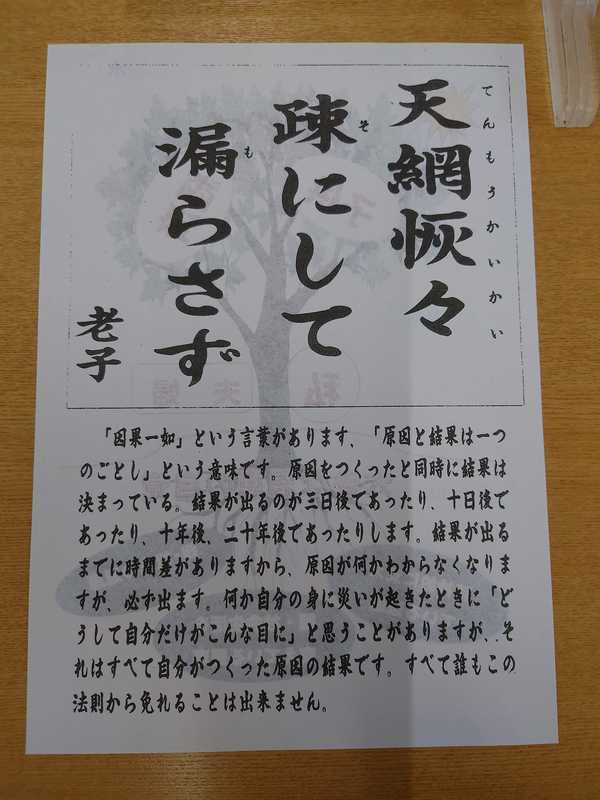 天網恢々
てんもうかいかい
疎にして
そ
漏らさず
も
老子
「因果一如」という言葉があります、「原因と結果は一つ
のごとし」という意味です。原因をつくったと同時に結果は
決まっている。結果が出るのが三日後であったり、十日後で
あったり、十年後、二十年後であったりします。結果が出る
までに時間差がありますから、原因が何かわからなくなりま
すが、必ず出ます。何か自分の身に災いが起きたときに「ど
うして自分だけがこんな目に」と思うことがありますが、、そ
れはすべて自分がつくった原因の結果です。すべて誰もこの
法則から免れることは出来ません。
私
夫婦